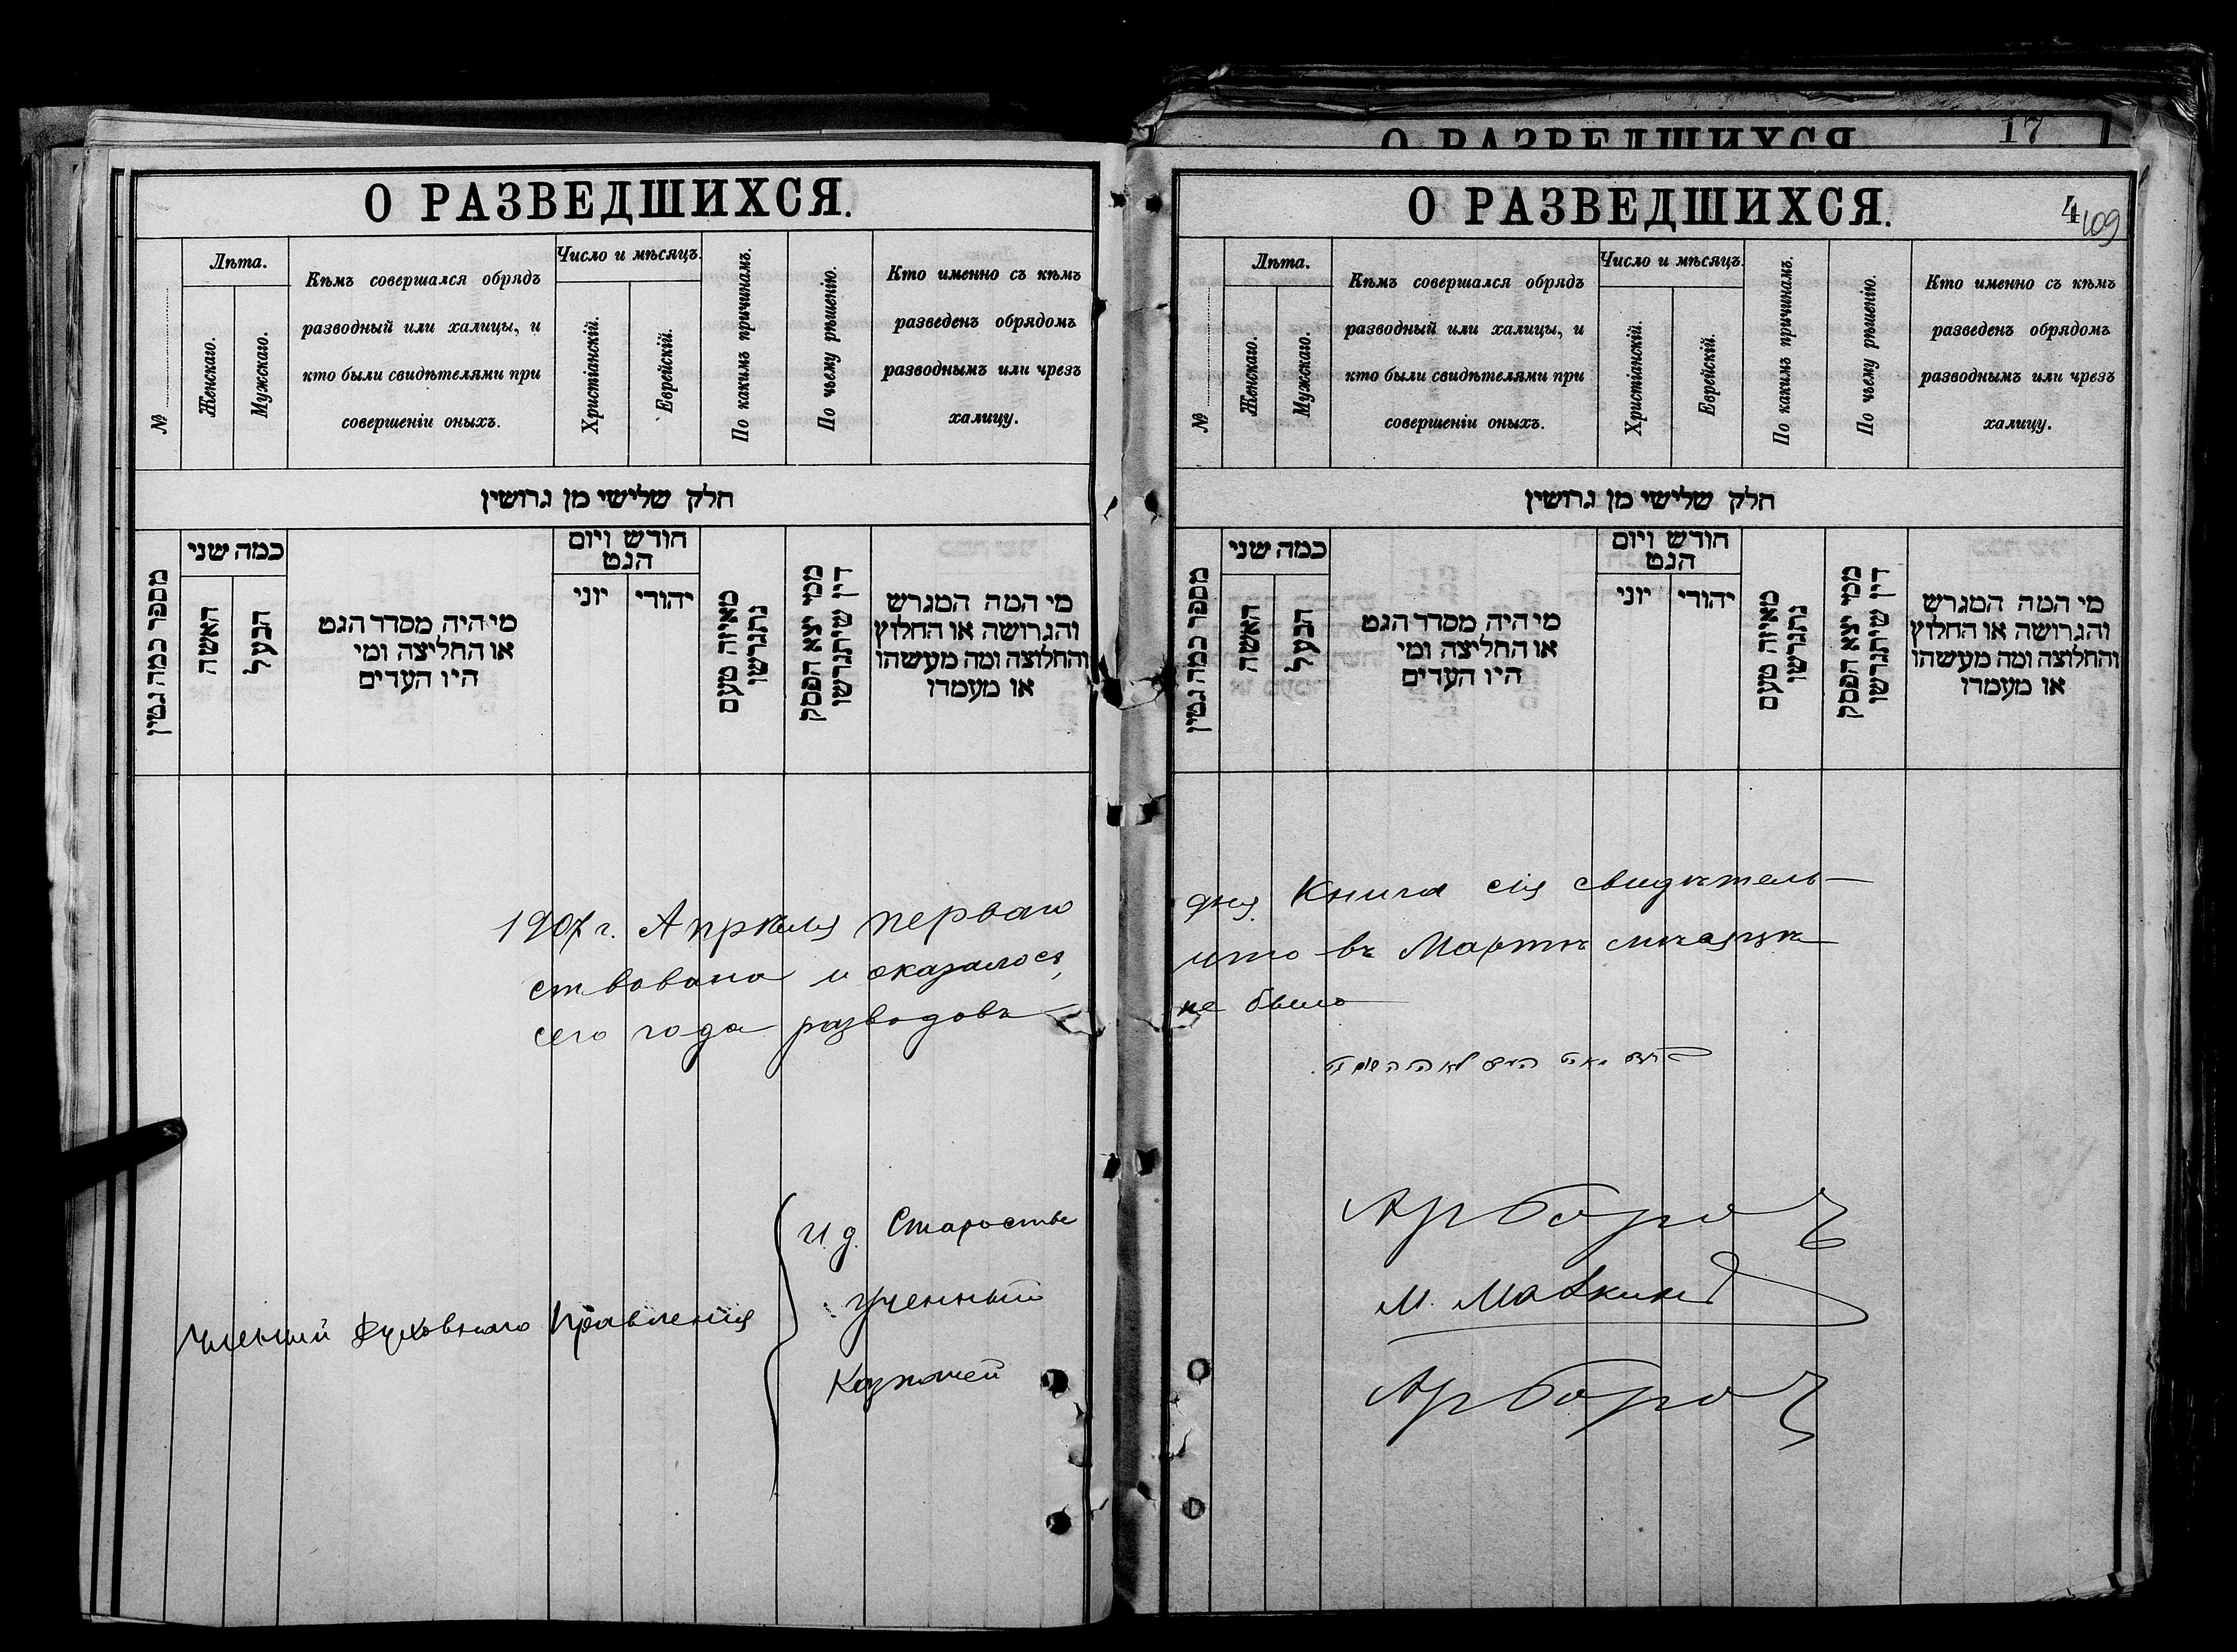 О РАЗВЕДШИХСЯ.
№
Лѣта.
Женскаго.
Мужскаго.
Кѣмъ совершался обрядъ
разводный или халицы, и
кто были свидѣтелями при
совершеніи оныхъ.
Число и мѣсяцъ.
Христіанскій.
Еврейскій.
По какимъ причинамъ.
По чьему рѣшенію.
Кто именно съ кѣмъ
разведенъ обрядомъ
разводнымъ или чрезъ
халицу.
חלק שלישי מן גרושין
מספר כמה גטין
כמה שני
האשה
הבעל
מי היה מסדר הגט
או החליצה ומי
היו העדים
חודש ויום
הגט
יוני
יהודי
מאיזה טעם
נתגרשו
ממי יצא הפסק
דין שיתגרשו
מי המה המגרש
והגרושה או החלוץ
והחלוצה ומה מעשהו
או מעמדו
1907 г. Апрѣля перваго
ствована и оказалось,
сего года разводовъ
Членый Духовнаго Правленія
И. д. Старосты
Ученный
Казначей
17
О РАЗВЕДШИХСЯ
О РАЗВЕДШИХСЯ.
4
109
№
Лѣта.
Женскаго.
Мужскаго.
Кѣмъ совершался обрядъ
разводный или халицы, и
кто были свидѣтелями при
совершеніи оныхъ.
Число и мѣсяцъ.
Христіанскій.
Еврейскій.
По какимъ причинамъ.
По чьему рѣшенію.
Кто именно съ кѣмъ
разведенъ обрядомъ
разводнымъ или чрезъ
халицу.
חלק שלישי מן גרושין
מספר כמה גטין
כמה שני
האשה
הבעל
מי היה מסדר הגט
או החליצה ומי
היו העדים
חודש ויום
הגט
יוני
יהודי
מאיזה טעם
נתגרשו
ממי יצא הפסק
דין שיתגרשו
מי המה המגרש
והגרושה או החלוץ
והחלוצה ומה מעשהו
או מעמדו
дня. Книга сія свидѣтель-
что въ Мартѣ мѣсяцѣ
не было
М.